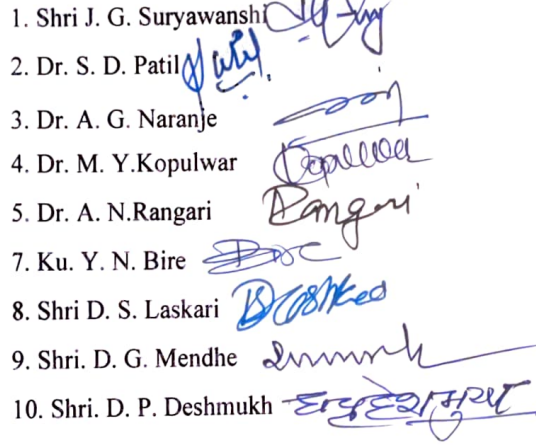 1. Shri J. G. Suryawanshi
2. Dr. S. D. Patil Patil
3. Dr. A. G. Naranje
4. Dr. M. Y.Kopulwar
5. Dr. A. N.Rangari Rangari
7. Ku. Y. N. Bire
8. Shri D. S. Laskari
9. Shri. D. G. Mendhe
10. Shri. D. P. Deshmukh